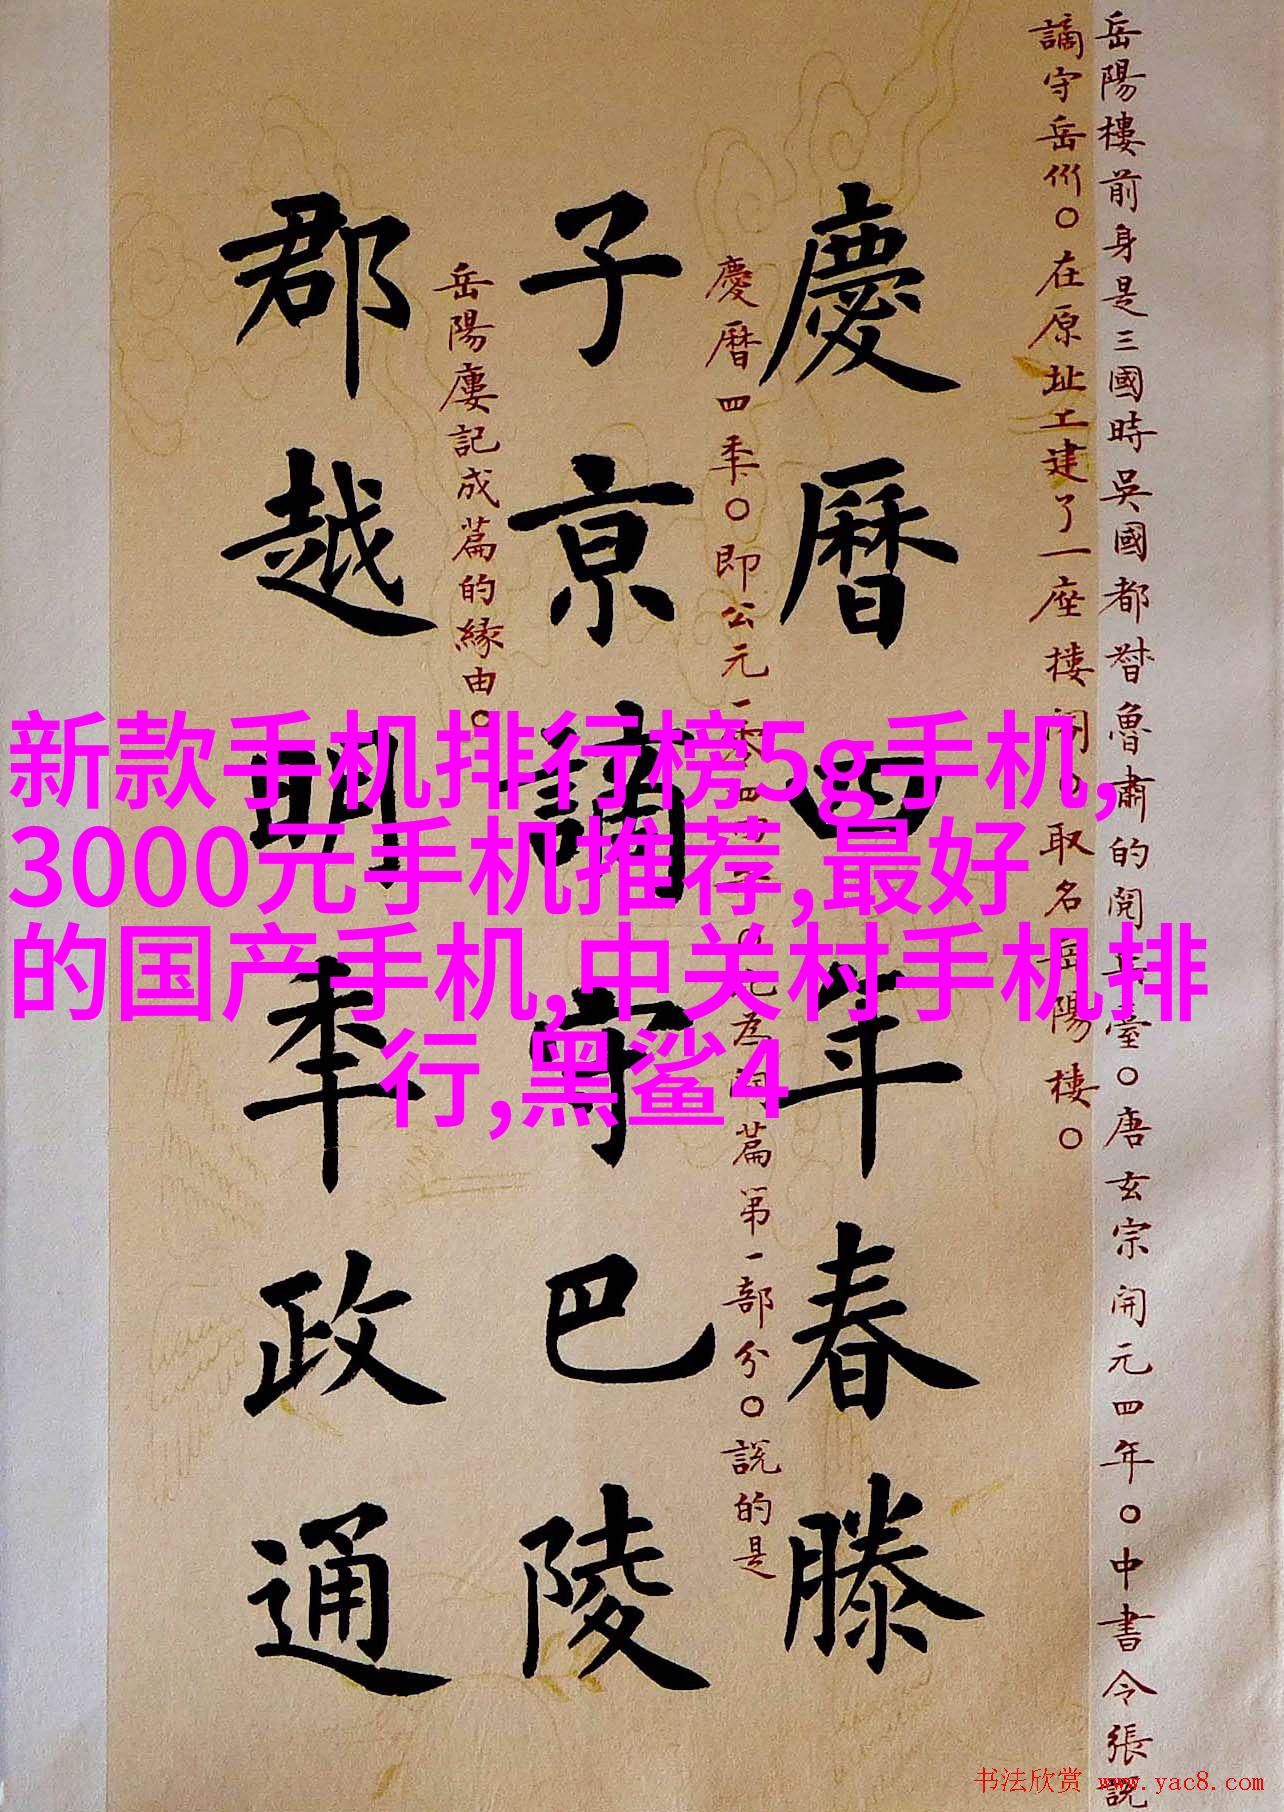 岳陽樓前身是三國時吳國都督魯肅的閱兵臺〇唐玄宗開元四年〇中書令張說
謫守岳州〇在原址工建了一座樓閣〇取名岳陽樓〇
慶曆四年春滕
慶曆四年〇即公元一零四四年〇此為開篇第一部分〇說的是
子京謫守巴陵
岳陽廔記成篇的緣由〇
郡越明年政通
新款手机排行榜5g手机,
3000元手机推荐,最好
的国产手机,中关村手机排
行,黑鲨4
书法欣赏 www.yac8.com